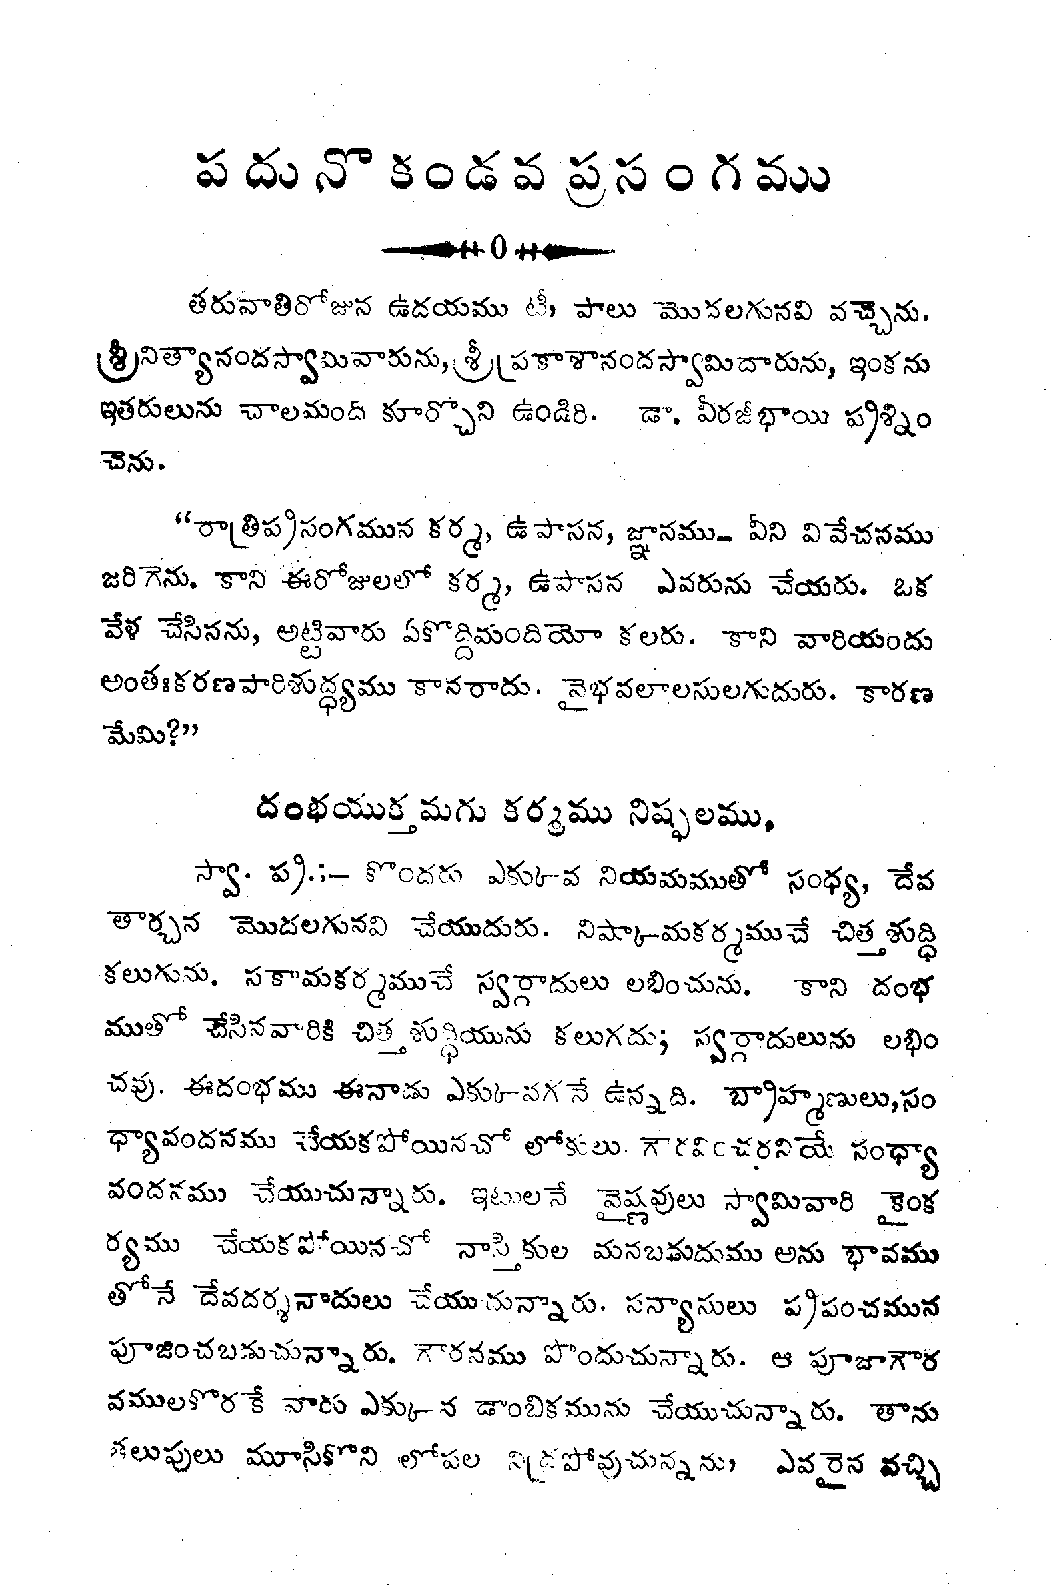 పదునొకండవ ప్రసంగము
తరువాతిరోజున ఉదయము టీ, పాలు మొదలగునవి వచ్చెను.
శ్రీనిత్యానందస్వామివారును, శ్రీ ప్రకాశానందస్వామివారును, ఇంకను
ఇతరులును చాలమంది కూర్చొని ఉండిరి. డా. వీరజీభాయి ప్రశ్నిం
చెను.
“రాత్రిప్రసంగమున కర్మ, ఉపాసన, జ్ఞానము- వీని వివేచనము
జరిగెను. కాని ఈరోజులలో కర్మ, ఉపాసన ఎవరును చేయరు. ఒక
వేళ చేసినను, అట్టివారు ఏకొద్దిమందియో కలరు. కాని వారియందు
అంతఃకరణపారిశుద్ధ్యము కానరాదు. వైభవలాలసులగుదురు. కారణ
మేమి?”
దంభయుక్తమగు కర్మము నిష్ఫలము.
స్వా. ప్ర.:— కొందరు ఎక్కువ నియమముతో సంధ్య, దేవ
తార్చన మొదలగునవి చేయుదురు. నిష్కామకర్మముచే చిత్తశుద్ధి
కలుగును. సకామకర్మముచే స్వర్గాదులు లభించును. కాని దంభ
ముతో చేసినవారికి చిత్తశుద్ధియును కలుగదు; స్వర్గాదులును లభిం
చవు. ఈదంభము ఈనాడు ఎక్కువగనే ఉన్నది. బ్రాహ్మణులు, సం
ధ్యావందనము చేయకపోయినచో లోకులు గౌరవించరనియే సంధ్యా
వందనము చేయుచున్నారు. ఇటులనే వైష్ణవులు స్వామివారి కైంక
ర్యము చేయకపోయినచో నాస్తికుల మనబడుదుము అను భావము
తోనే దేవదర్శనాదులు చేయుచున్నారు. సన్యాసులు ప్రపంచమున
పూజించబడుచున్నారు. గౌరవము పొందుచున్నారు. ఆ పూజాగౌర
వములకొరకే వారు ఎక్కువ డాంబికమును చేయుచున్నారు. తాను
తలుపులు మూసికొని లోపల నిద్రపోవుచున్నను, ఎవరైన వచ్చి